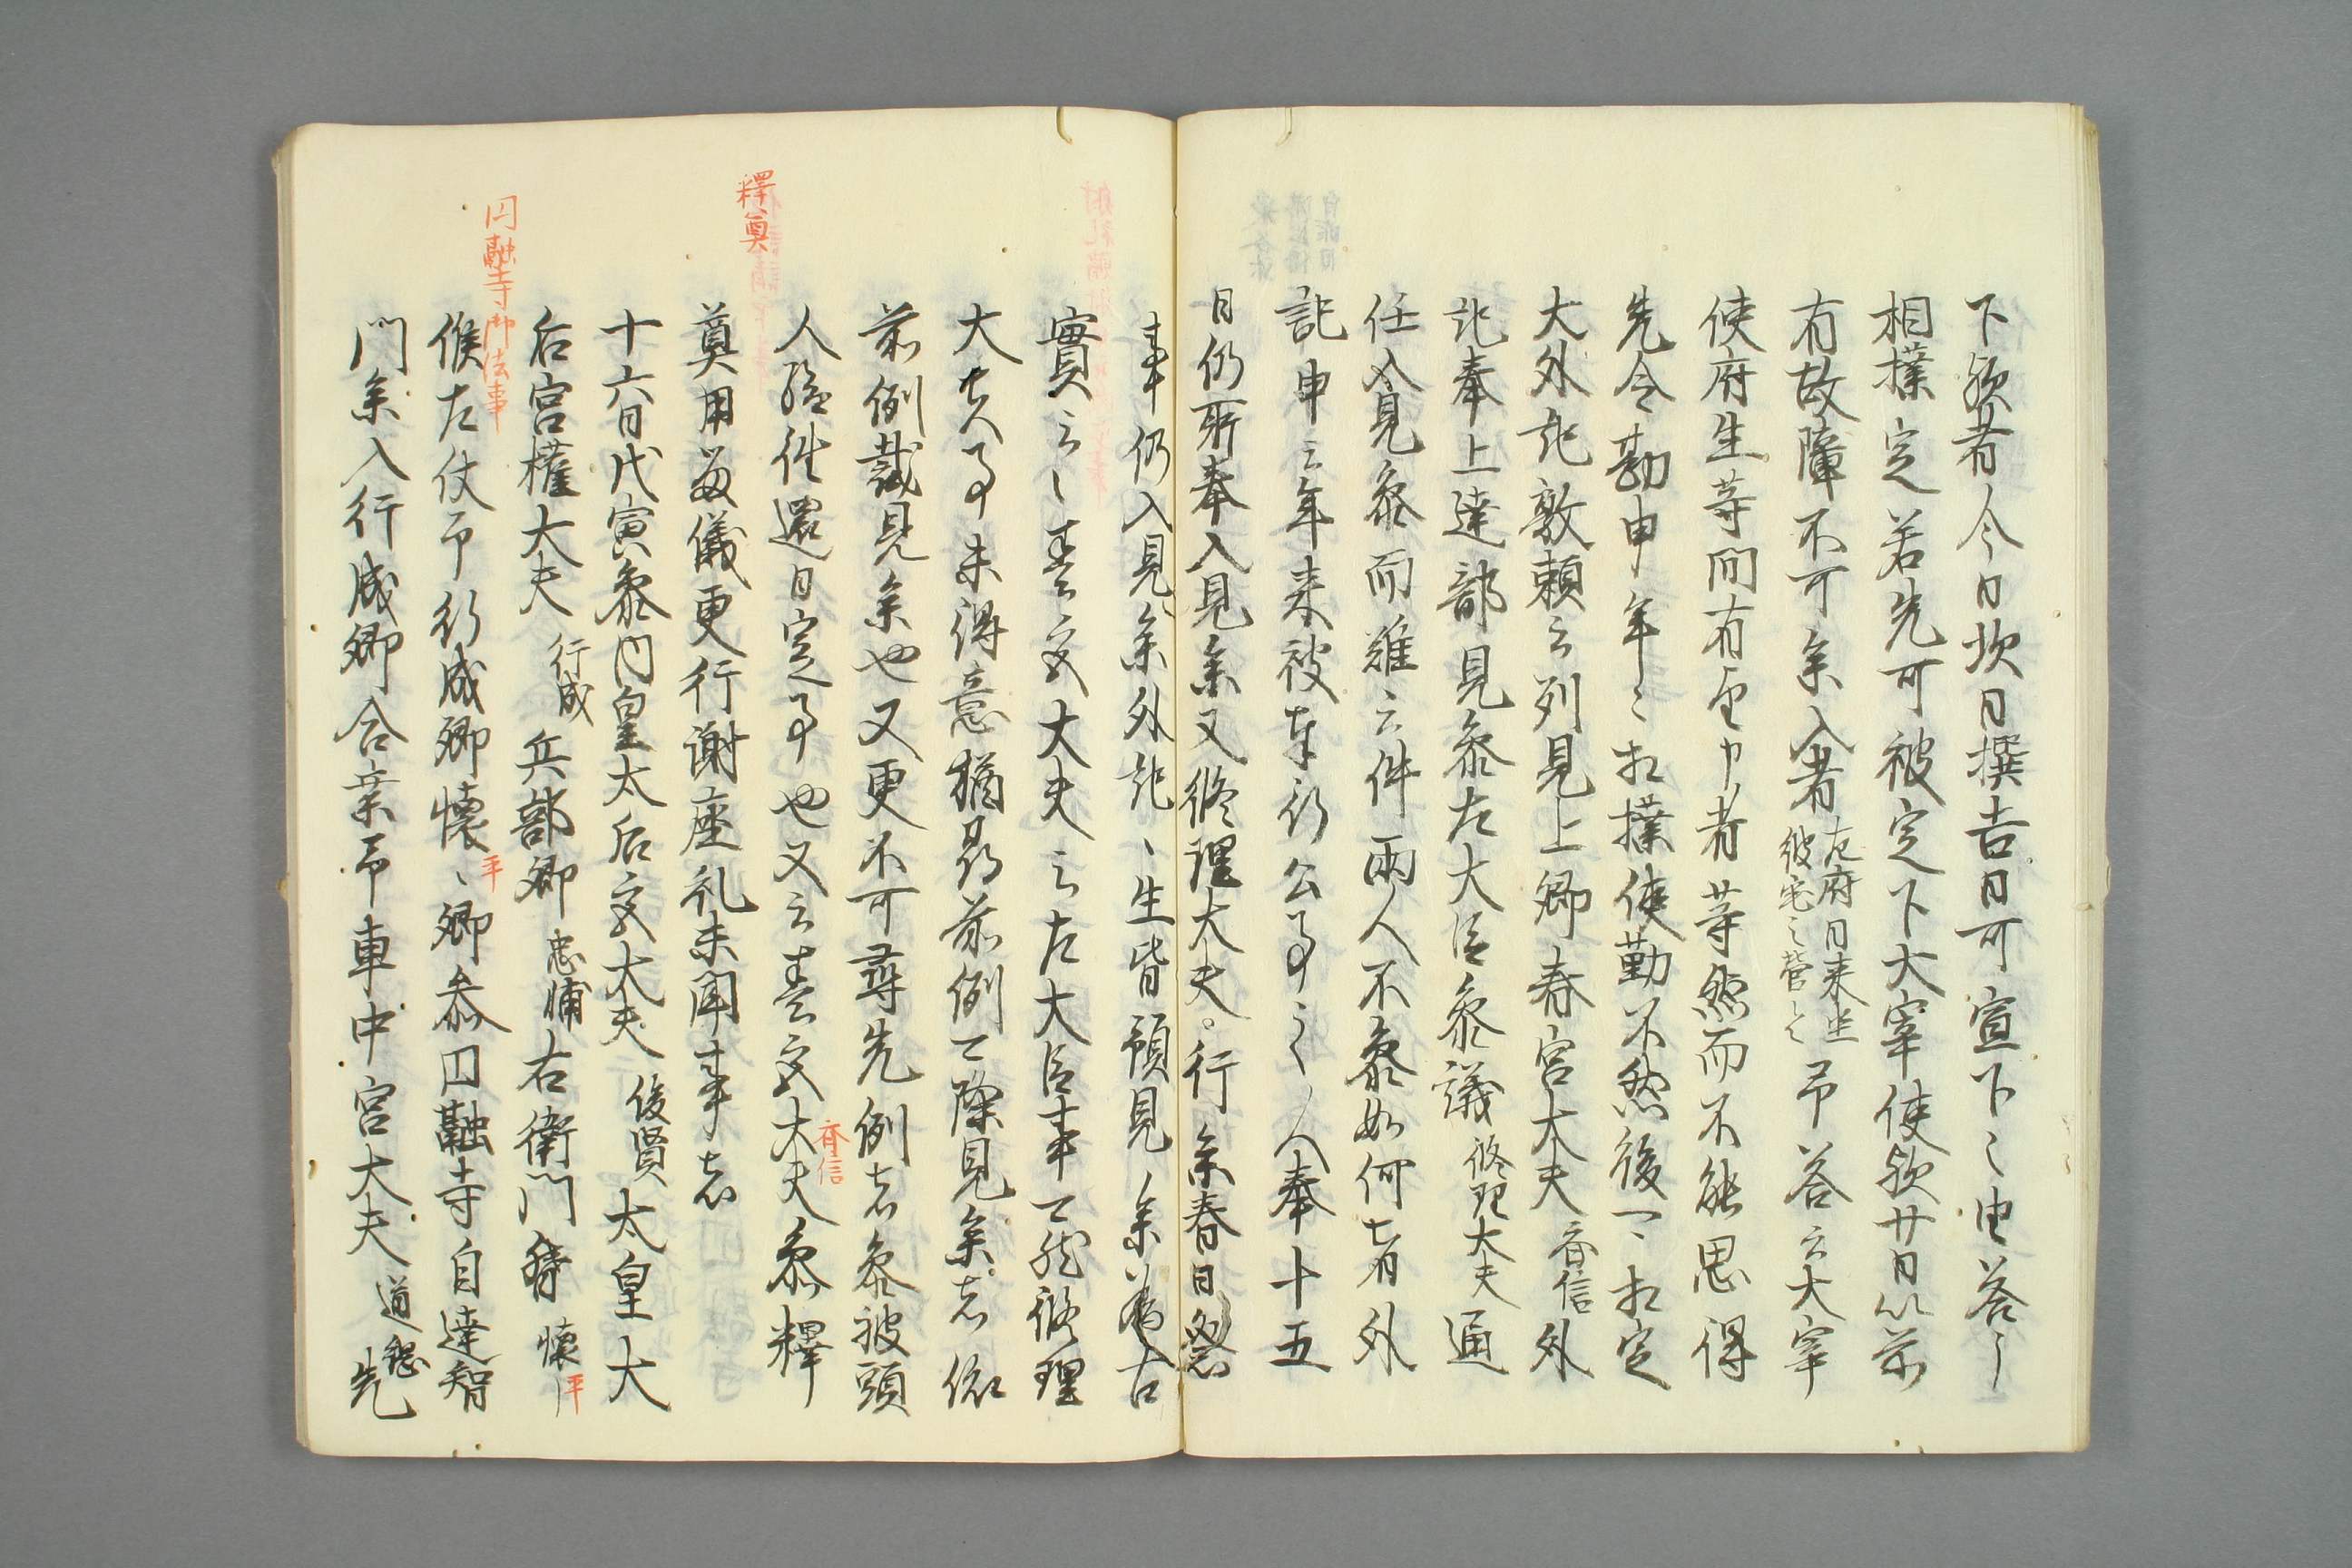 下欤者今日坎日撰吉日可宣下〻由答〻
相撲定若先可被定下大宰使欤廿日以前
有故障不可参入者左府日来坐彼宅之营々予答云大宰
使府生等間有申者等然而不能思得
先令勘申年〻相撲使勤不然後一〻相定
大外記敦頼云列見上卿春宮大夫斉信外
記奉上達部見参左大臣参議修理大夫通
任入見参而雖云件両人不参如何者外
記申云年来被奉行公事之人奉十五
日仍所奉入見参又修理大夫。行参春日祭
事仍入見参外記〻生皆預見参為古
實云〻春宮大夫云左大臣事可然修理
大夫事未得意猶尋前例可除見参者依
前例載見参也又更不可尋先例者参被頭
人経件還日定事也又云春宮大夫斉信参釋
奠用最儀更行謝座礼未聞事者
釋奠
十六日戊寅参内皇太后宮大夫俊賢太皇大
后宮權大夫行成兵部卿忠輔右衛門督懐平
円融寺御法事
候左仗予行成卿懐〻平卿参円融寺自達智
門参入行成卿合乗予車中宮大夫道綱先